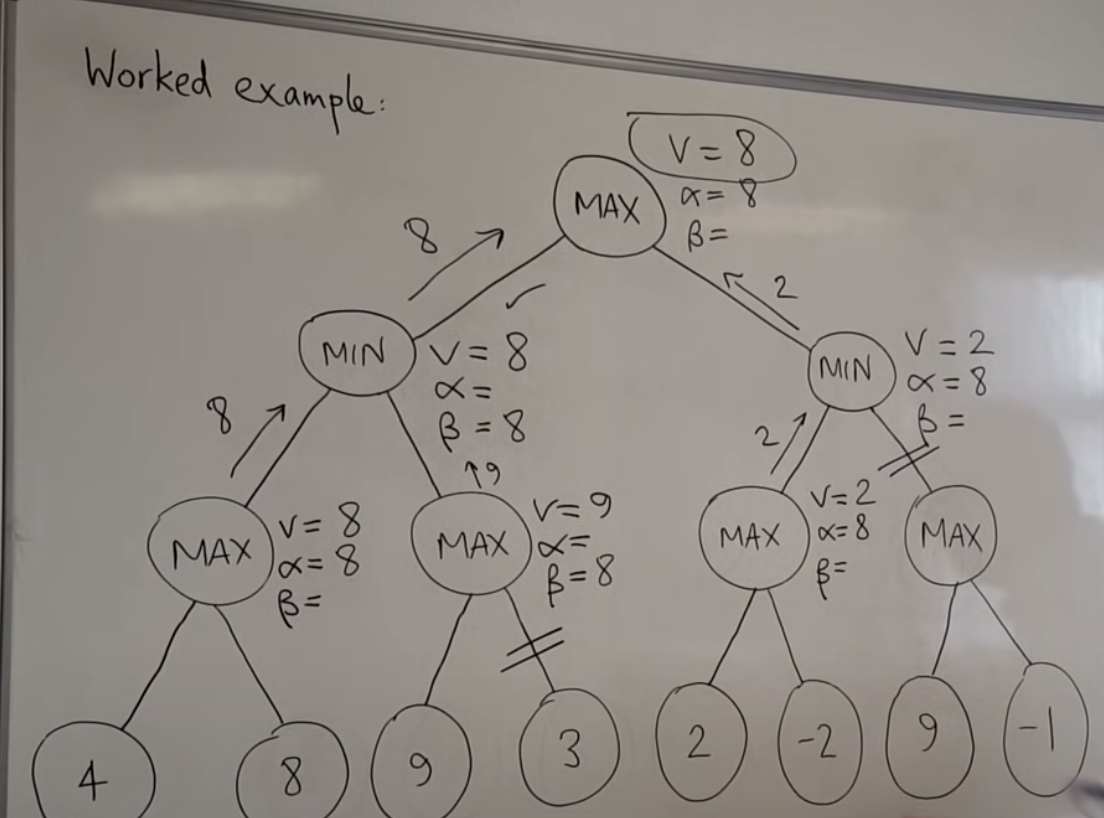 Worked example:
V = 8
MAX
α = 8
β =
8
2
MIN
V = 8
α =
β = 8
MIN
V = 2
α = 8
β =
8
↑9
2
MAX
V = 8
α = 8
β =
MAX
V = 9
α =
β = 8
MAX
V = 2
α = 8
β =
MAX
4
8
9
3
2
-2
9
-1